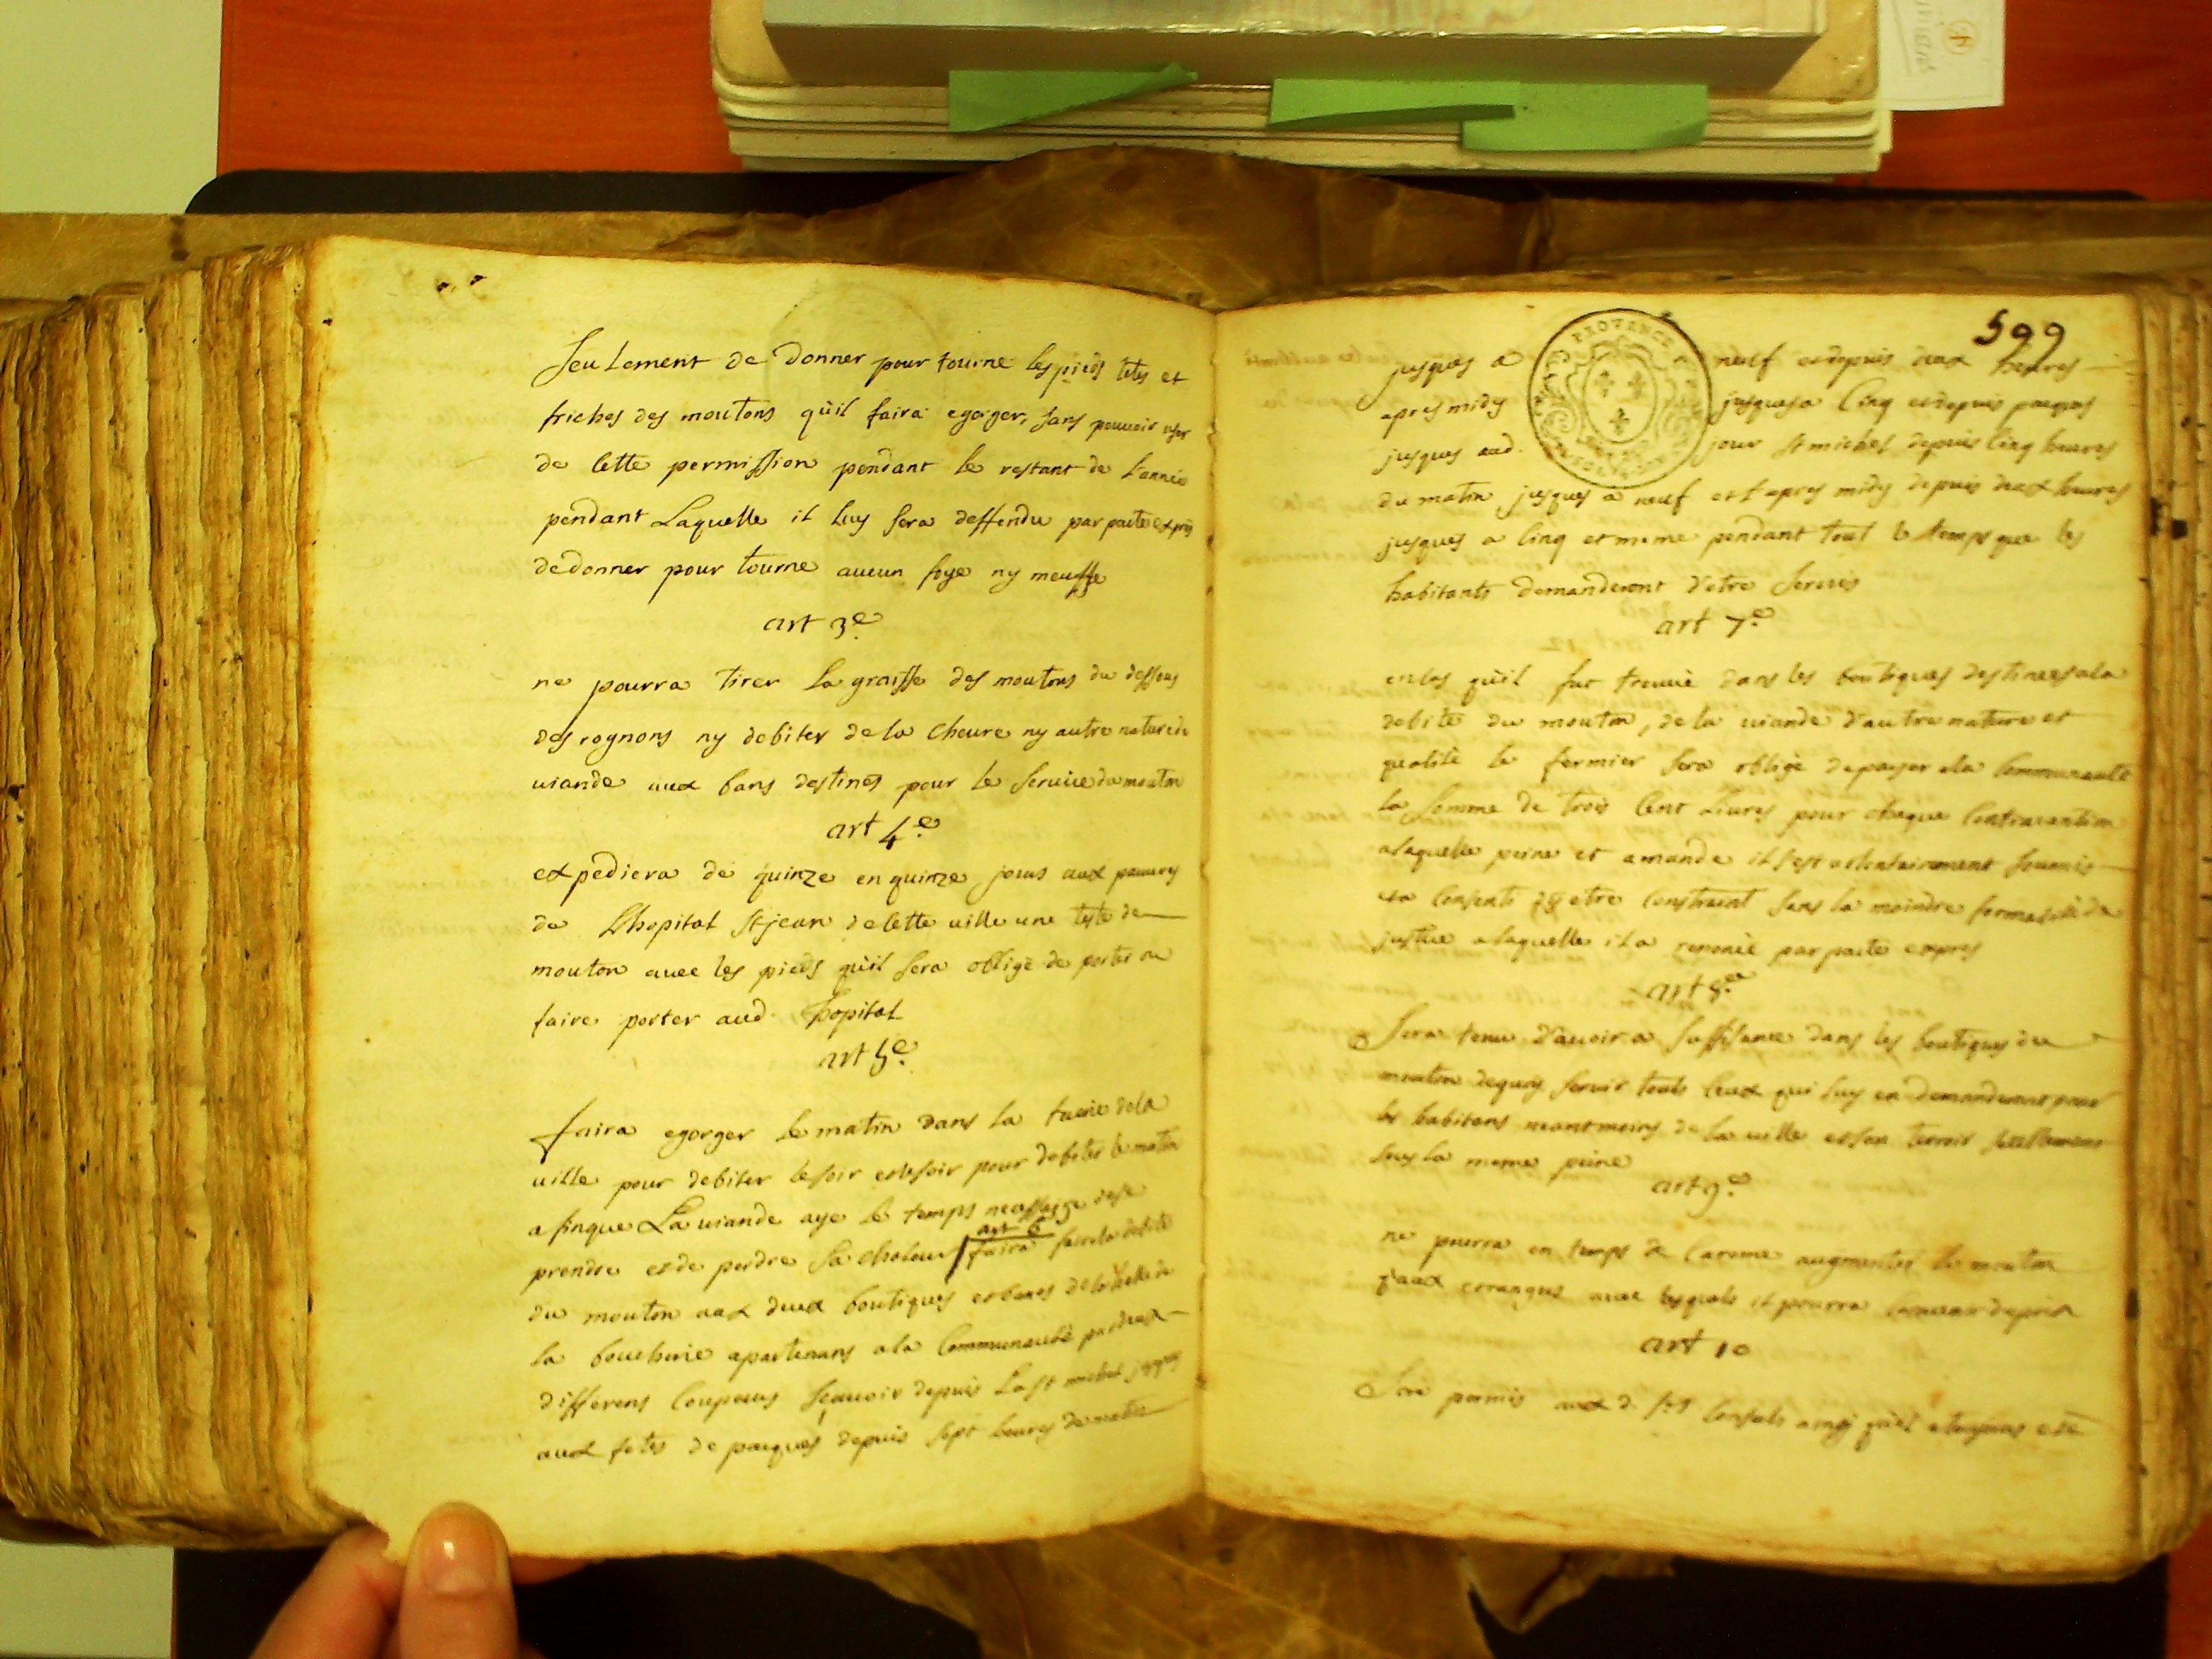 Seulement de donner pour tourne les pieds tetes et
friches des moutons qu'il faira egorger, sans pouvoir user
de cette permission pendant le restant de l'année
pendant Laquelle il luy sera deffendu par pacte expres
de donner pour tourne aucun foye ny meuffe
art 3e.
ne pourra tirer la graisse des moutons du dessous
des rognons ny debiter de la cheure ny autre nature de
uiande aux bans destinés pour le seruice du mouton
art 4e.
expediera de quinze en quinze jours aux pauures
de L'hopital St jean de cette uille une teste de
mouton auec les pieds qu'il sera obligé de porter ou
faire porter aud. hopital
art 5e.
faira egorger le matin dans la tuerie de la
uille pour debiter le soir et le soir pour debiter le matin
afinque La uiande aye le temps neccessaire de se
prendre et de perdre sa chaleur
art 6
faira faire la debite
du mouton aux deux boutiques et bancs de la halle de
la boucherie apartenans a la Communauté par deux
differens coupeurs scauoir depuis La St michel jusques
aux fetes de paques depuis sept heures du matin
599
PROVENCE
jusques a neuf et depuis deux heures
apres midy jusques a cinq et depuis paques
jusques aud. jour St michel depuis cinq heures
du matin jusques a neuf et l'apres midy depuis deux heures
jusques a cinq et meme pendant tout le temps que les
habitants demanderont d'etre seruis
art 7e.
en cas qu'il fut trouué dans les boutiques destinees a la
debite du mouton, de la uiande d'autre nature et
qualité le fermier sera obligé de payer a la Communauté
la somme de trois cent Liures pour chaque contrauantion
a laquelle peine et amande il s'est uolontairement soumis
et a consenti d'y etre constraint sans la moindre formalité de
justice a laquelle il a renoncé par pacte expres
art 8e.
Sera tenu d'auoir a suffisance dans les boutiques du
mouton dequoy seruir touts ceux qui luy en demanderont pour
les habitans neantmoins de la uille et son terroir seullement
sous la meme peine
art 9e.
ne pourra en temps de careme augmenter le mouton
qu'aux etrangers auec lesquels il pourra conuenir du prix
art 10
Sera permis aux d. srs Consuls ainsy qu'il a toujours eté